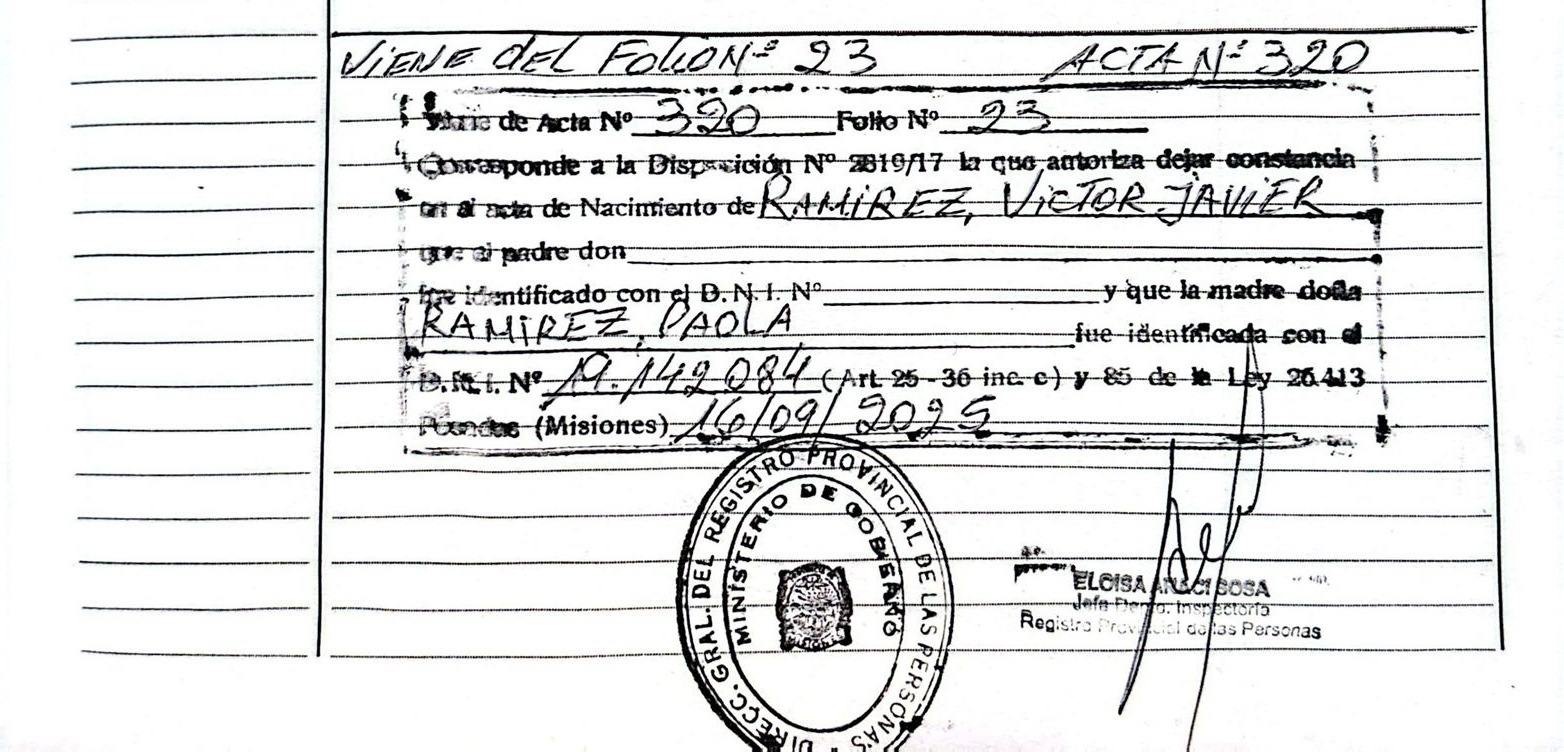 VIENE DEL FOLIO Nº 23 ACTA Nº 320
de Acta Nº 320 Folio Nº 23
Corresponde a la Disposición Nº 2819/17 la que autoriza dejar constancia
en el acta de Nacimiento de RAMIREZ, VICTOR JAVIER
que el padre don
fue identificado con el D. N. I. Nº y que la madre doña
RAMIREZ, PAOLA fue identificada con el
D. N. I. Nº 19.142.084 (Art. 25 - 36 inc. c) y 85 de la Ley 26.413
Posadas (Misiones) 16/09/2025
DIRECC. GRAL. DEL REGISTRO PROVINCIAL DE LAS PERSONAS
MINISTERIO DE GOBERNO
MISIONES
ELOISA SOSA
Jefa Depto. Inspectoria
Registro Provincial de las Personas